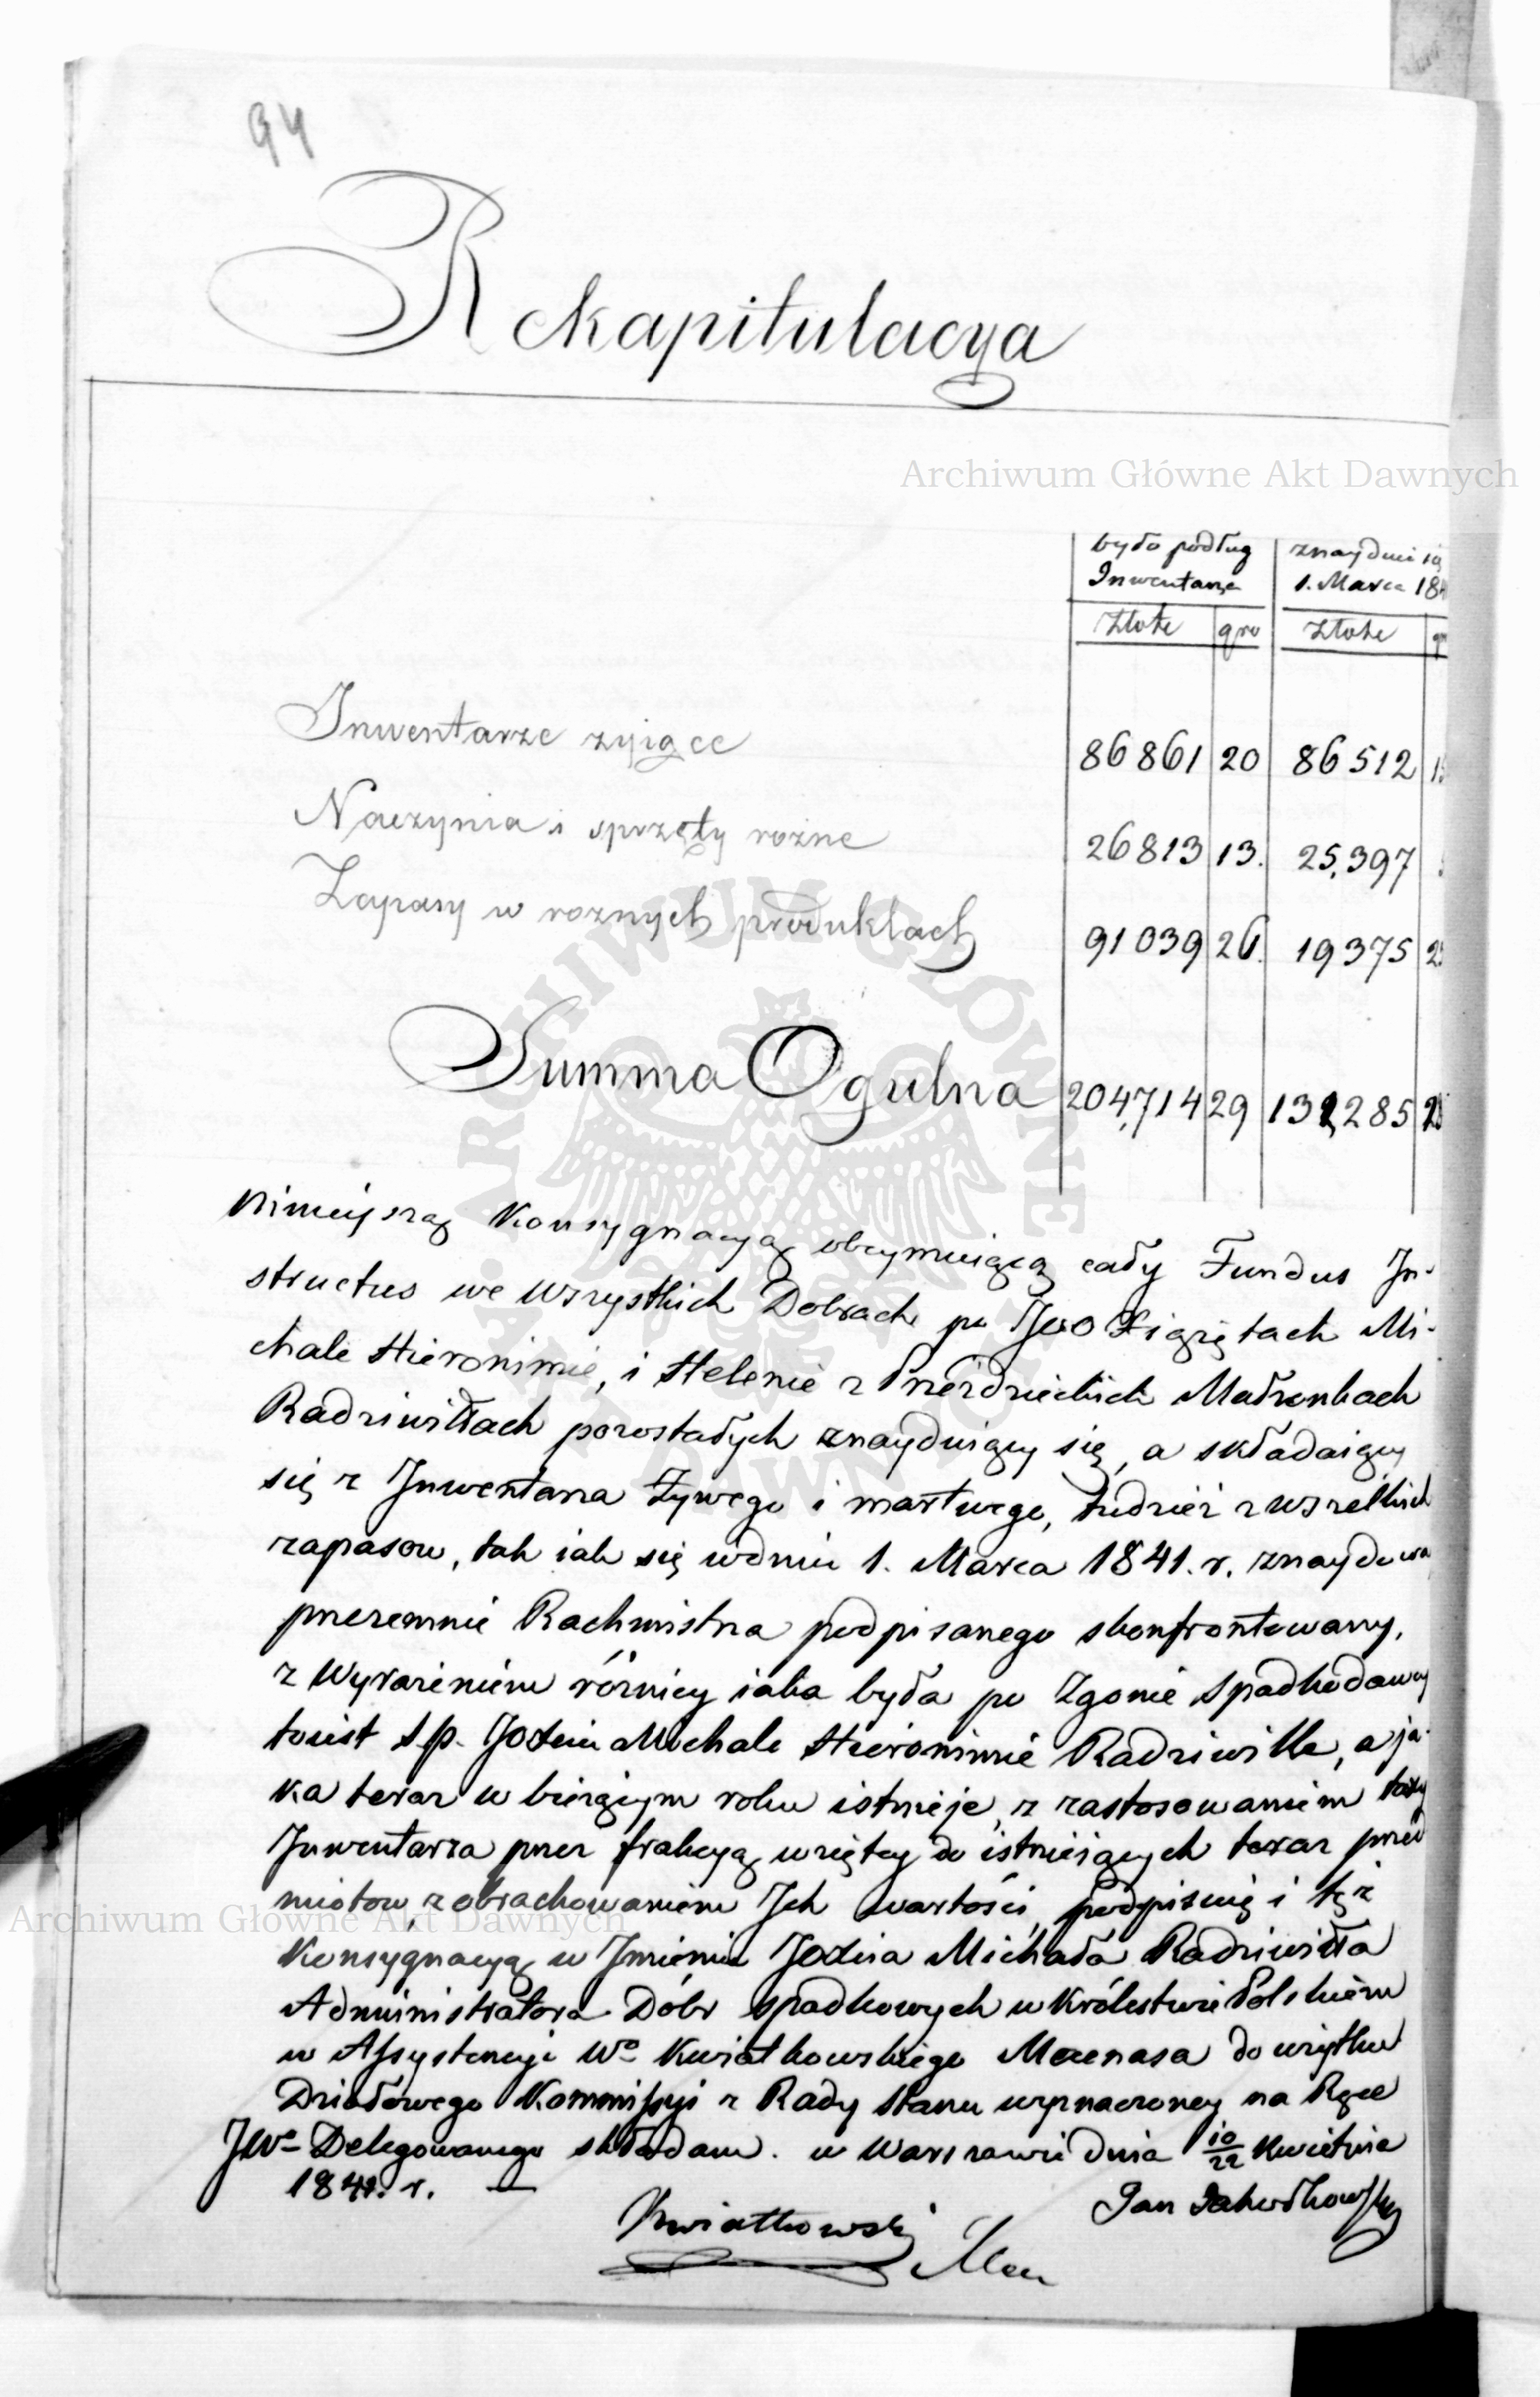 94
Rekapitulacya
Archiwum Główne Akt Dawnych
było podług znayduie się
Inwentarza 1. Marca 184
Złote gro Złote gr
Inwentarze zyiące 86861 20 86512
Naczynia i sprzęty rozne 26813 13. 25,397
Zapasy w roznych produktach 91039 26. 19375
Summa Ogulna 204,714 29 131,285
ARCHIWUM GŁÓWNE AKT DAWNYCH
Ninieyszą Konsygnacyą obeymuiącą cały Fundus In-
structus we wszystkich Dobrach po JOO Xiążętach Mi-
chale Hieronimie, i Helenie z Przeździeckich Małżonkach
Radziwiłłach pozostałych znayduiący się, a składaiący
się z Inwentarza Żywego i martwego, tudzież z wszelkich
zapasow, tak iak się wdniu 1. Marca 1841. r. znaydowa
przezemnie Rachmistrza podpisanego skonfrontowany,
z Wyrażeniem różnicy iaka była po Zgonie Spadkodawcy
toiest s.p. JOXciu Michale Hieronimie Radziwille, a ja-
ka teraz w bieżącym roku istnieje, z zastosowaniem taxy
Inwentarza przez frakcyą wziętey do istnieiących teraz przed
miotow, z obrachowaniem Ich wartości, podpisuię i tęż
Archiwum Główne Akt Dawnych
Konsygnacyą w Imieniu JOXcia Michała Radziwiłła
Administratora Dóbr spadkowych w Królestwie Polskiém
w Assystencyi Wo Kwiatkowskiego Mecenasa do użytku
Działowego Kommissyi z Rady Stanu wyznaczoney na Ręce
JWo Delegowanego składam. w Warszawie dnia 10/22 Kwietnia
1841. r. —
Jan
Kwiatkowski Mec